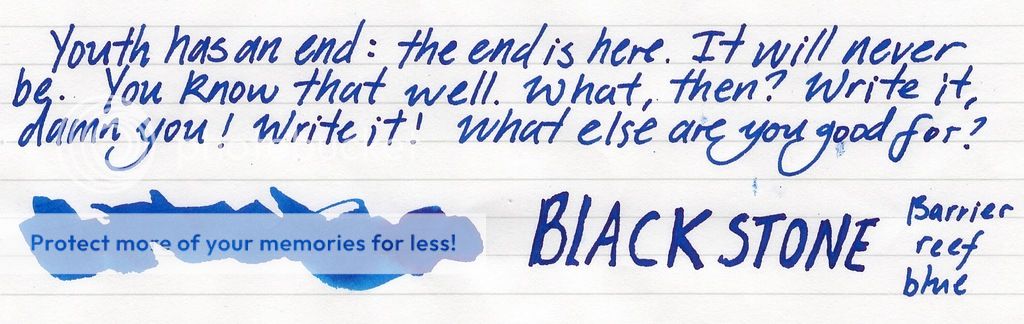 Youth has an end: the end is here. It will never
be. You know that well. What, then? Write it,
damn you! Write it! What else are you good for?
Protect more of your memories for less!
BLACKSTONE
Barrier
reef
blue